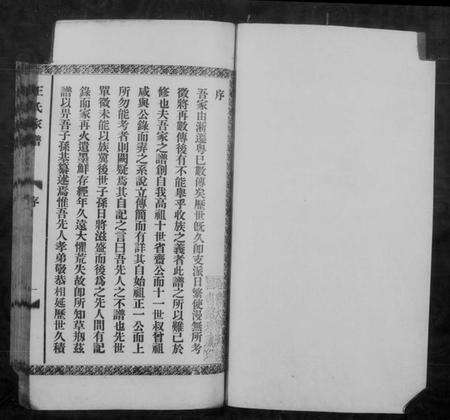 序
吾家由浙遷粤已數傳矣歷世旣久卽支派日繁使漫無所考
徵將再數傳後有不能舉乎收族之義者此譜之所以難已於
修也夫吾家之譜創自我高祖十世省齋公而十一世叔曾祖
咸與公錄而弆之系說立傳簡而有詳其自始祖正一公而上
所勿能考者則闕疑焉其自記之言曰吾先人之不譜也先世
單微未能以族冀後世子孫日將滋盛而後爲之先人間有記
錄而家再火遺墨鮮存經年久遠大懼荒失故卽所知草剏茲
譜以畀吾子孫基纂述焉惟吾先人孝弟敬恭相延歷世久積
王氏家譜
序
一